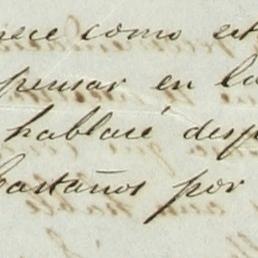 nece como est
pensar en la
hablaré desp
Castaños por